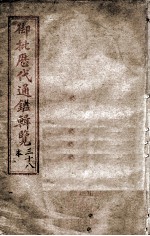 御批歷代通鑑輯覽
三十八